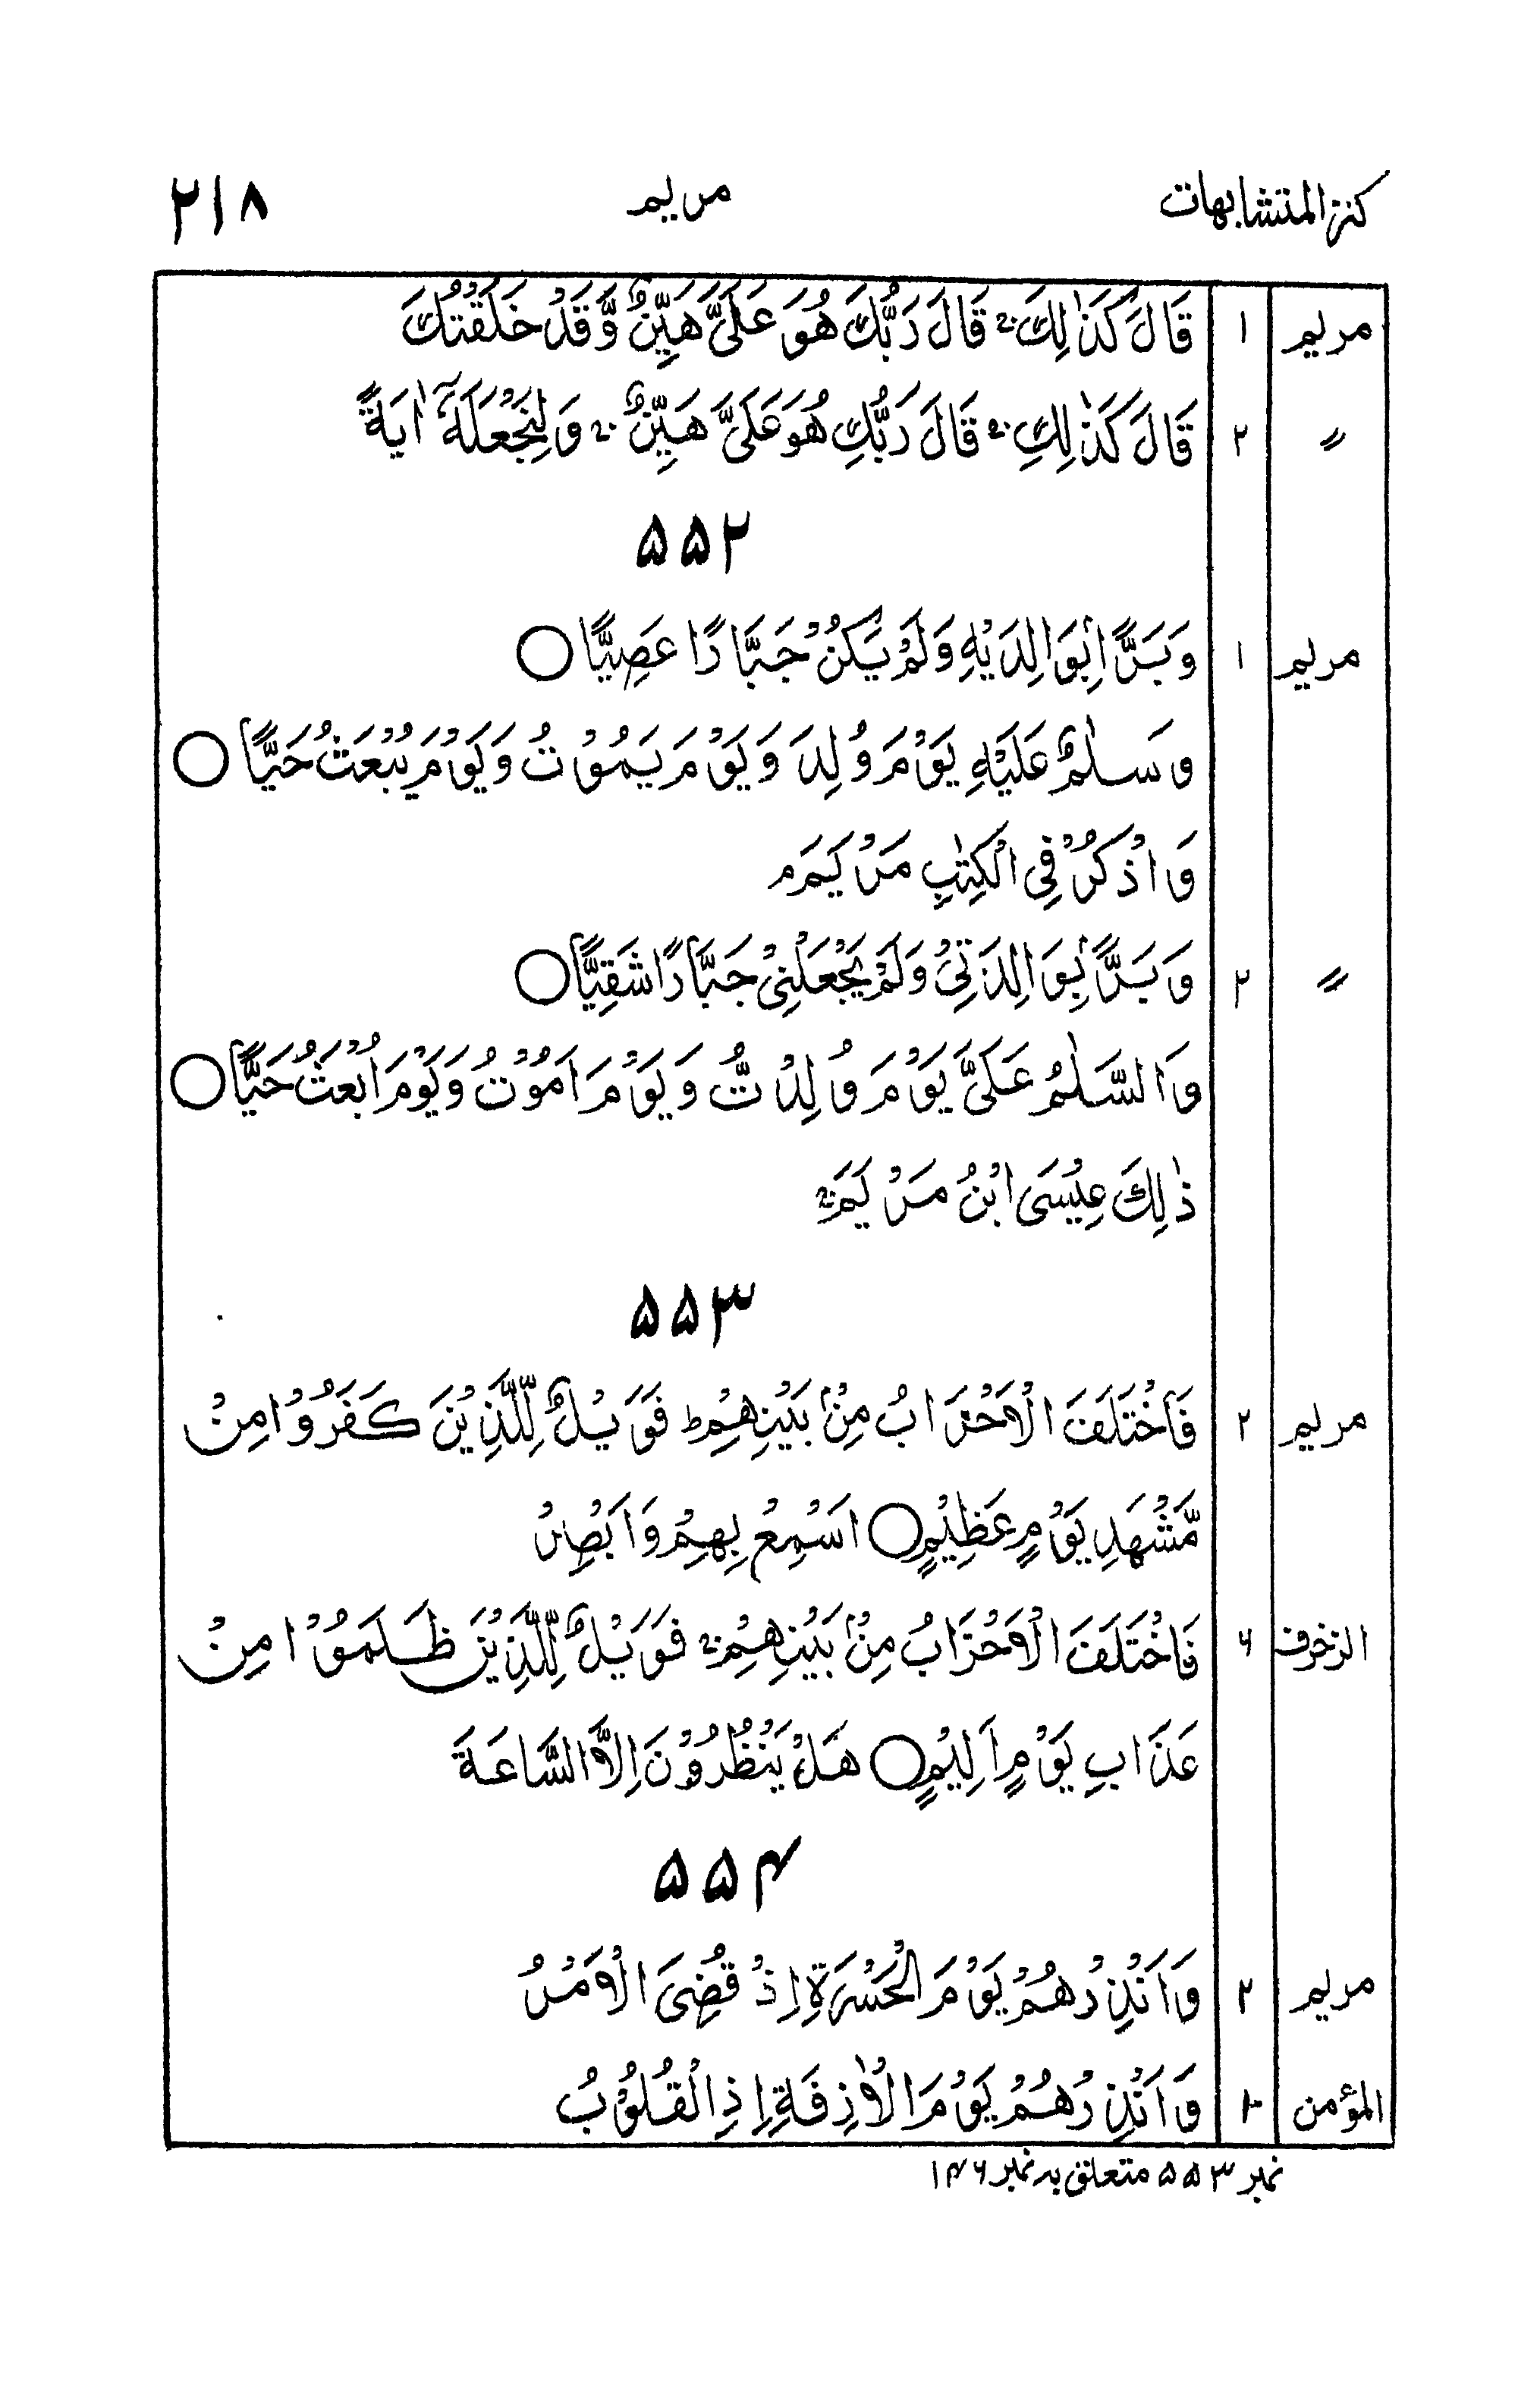 كنز المتشابهات مريم ۲۱۸
مريم ۱ قَالَ كَذٰلِكَ ۚ قَالَ رَبُّكَ هُوَ عَلَىَّ هَيِّنٌ وَّقَدْ خَلَقْتُكَ
〃 ۲ قَالَ كَذٰلِكِ ۚ قَالَ رَبُّكِ هُوَ عَلَىَّ هَيِّنٌ ۚ وَلِنَجْعَلَهٗٓ اٰيَةً
۵۵۲
مريم ۱ وَبَرًّاۢ بِوَالِدَيْهِ وَلَمْ يَكُنْ جَبَّارًا عَصِيًّا ○
وَسَلٰمٌ عَلَيْهِ يَوْمَ وُلِدَ وَيَوْمَ يَمُوْتُ وَيَوْمَ يُبْعَثُ حَيًّا ○
وَاذْكُرْ فِى الْكِتٰبِ مَرْيَمَ ۘ
〃 ۲ وَبَرًّۢا بِوَالِدَتِىْ وَلَمْ يَجْعَلْنِىْ جَبَّارًا شَقِيًّا ○
وَالسَّلٰمُ عَلَىَّ يَوْمَ وُلِدْتُّ وَيَوْمَ اَمُوْتُ وَيَوْمَ اُبْعَثُ حَيًّا ○
ذٰلِكَ عِيْسَى ابْنُ مَرْيَمَ ۚ
۵۵۳
مريم ۲ فَاخْتَلَفَ الْاَحْزَابُ مِنْۢ بَيْنِهِمْ ۚ فَوَيْلٌ لِّلَّذِيْنَ كَفَرُوْا مِنْ
مَّشْهَدِ يَوْمٍ عَظِيْمٍ ○ اَسْمِعْ بِهِمْ وَاَبْصِرْ
الزخرف ۶ فَاخْتَلَفَ الْاَحْزَابُ مِنْۢ بَيْنِهِمْ ۚ فَوَيْلٌ لِّلَّذِيْنَ ظَلَمُوْا مِنْ
عَذَابِ يَوْمٍ اَلِيْمٍ ○ هَلْ يَنْظُرُوْنَ اِلَّا السَّاعَةَ
۵۵۴
مريم ۲ وَاَنْذِرْهُمْ يَوْمَ الْحَسْرَةِ اِذْ قُضِىَ الْاَمْرُ
المؤمن ۲ وَاَنْذِرْهُمْ يَوْمَ الْاٰزِفَةِ اِذِ الْقُلُوْبُ
نمبر ۵۵۳ متعلق بہ نمبر ۱۴۶